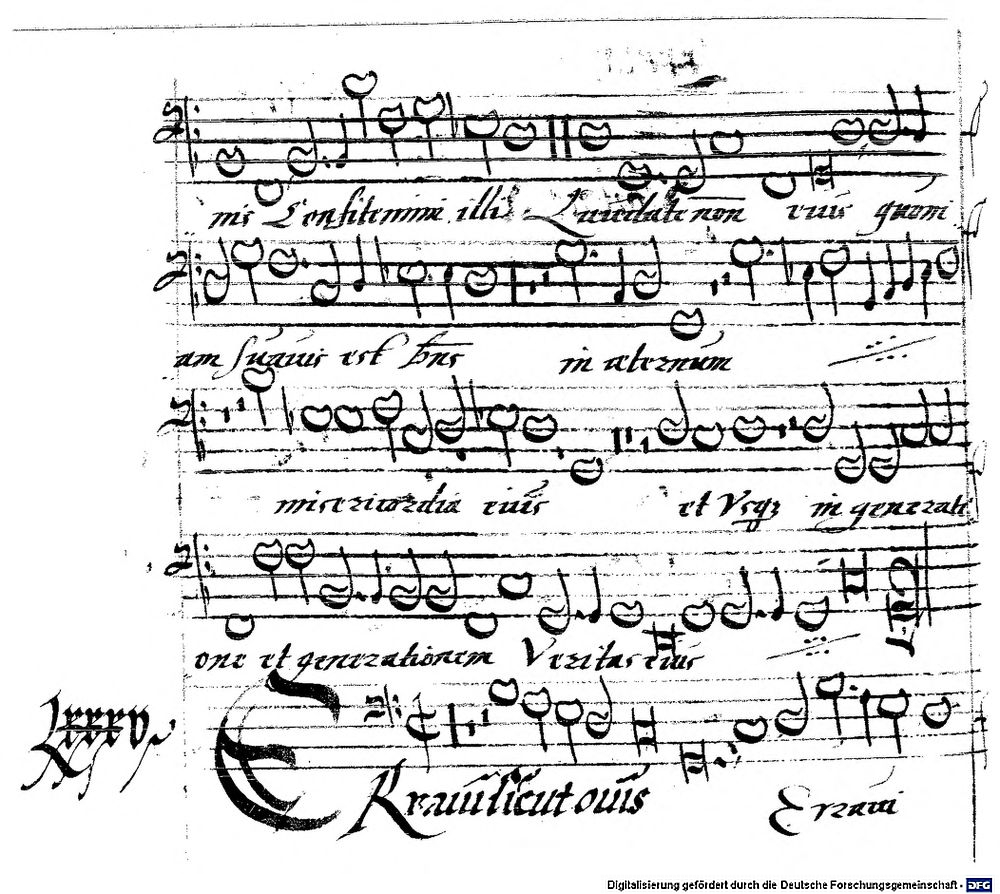 mis Confitemini illi Laudate non eius quoni
am suauis est dns in æternum
misericordia eius et Vsq; in generati
one et generationem Veritas eius
Lxxxv. ERraui sicut ouis Erraui
Digitalisierung gefördert durch die Deutsche Forschungsgemeinschaft - DFG